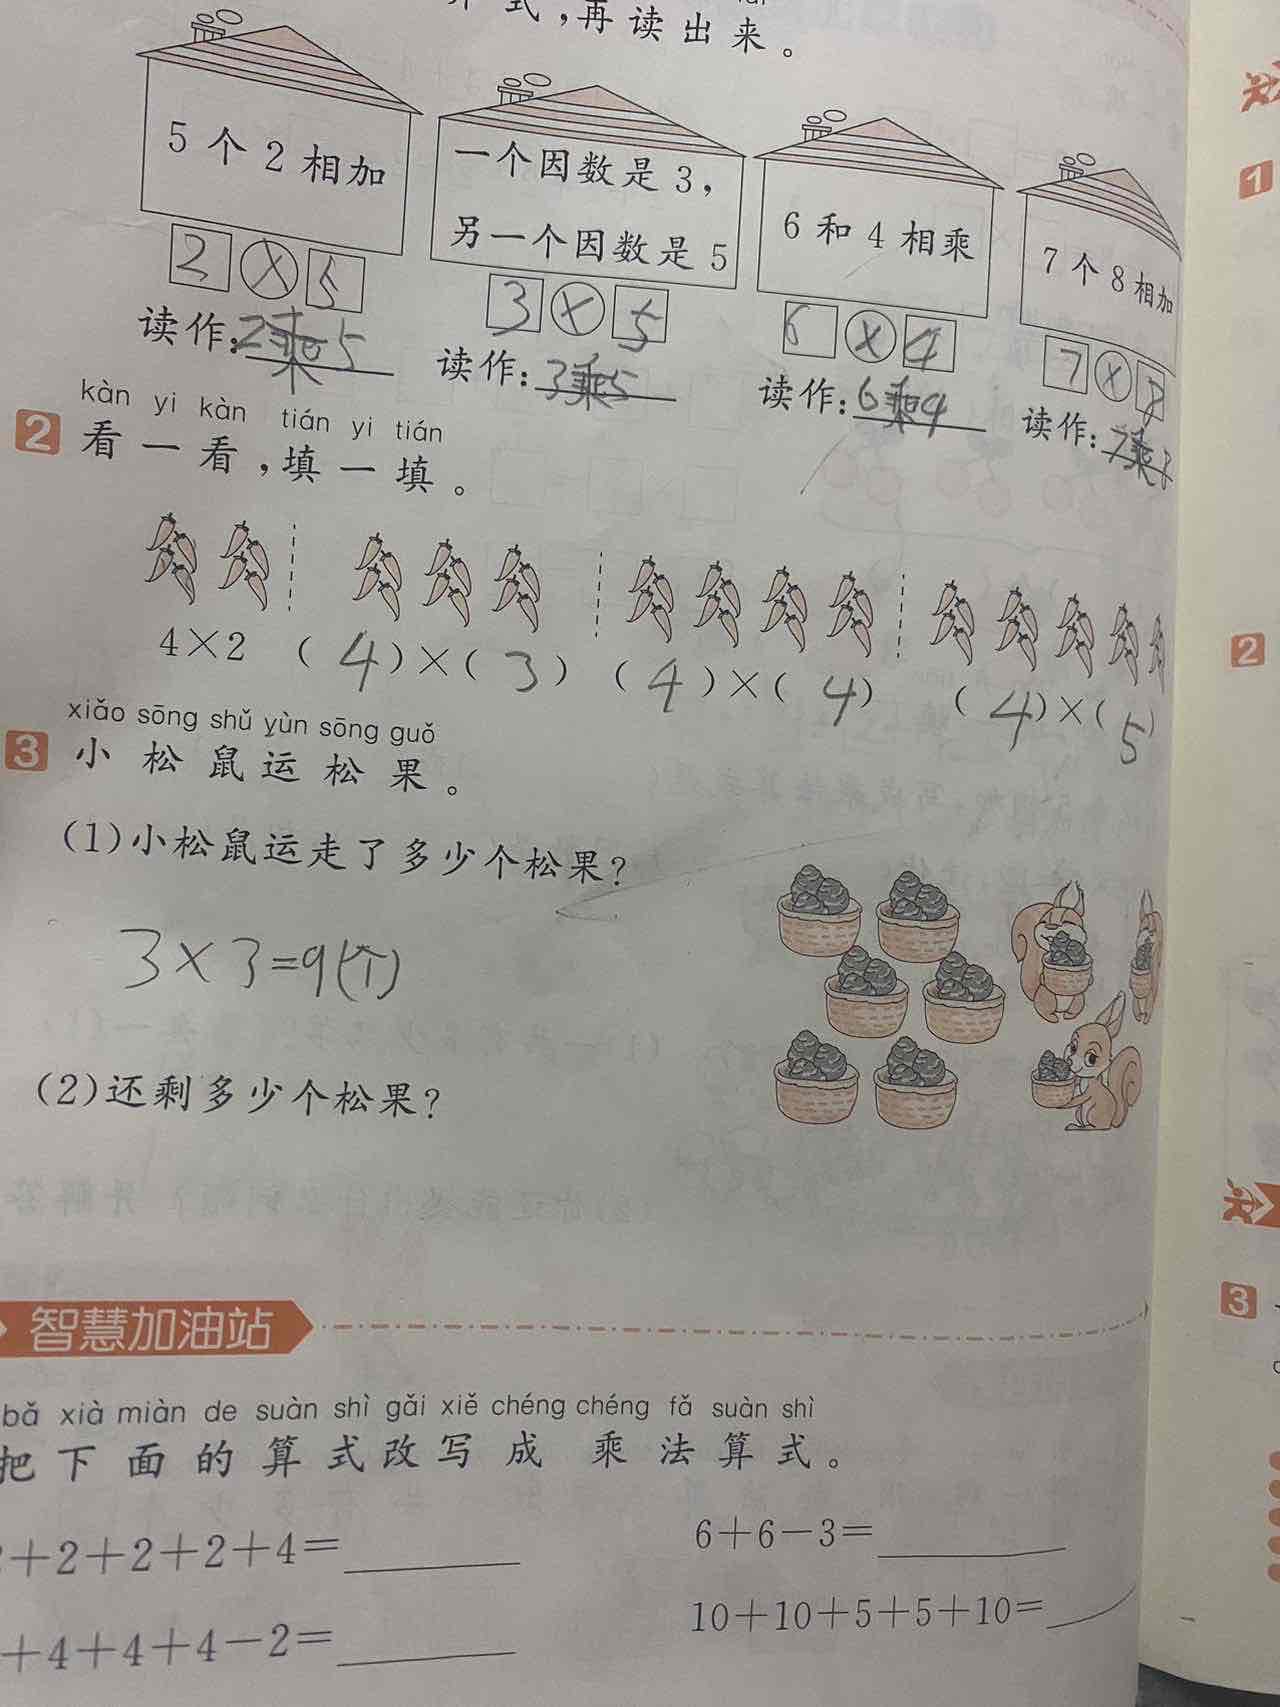 算式，再读出来。
5个2相加
一个因数是3，
另一个因数是5
6和4相乘
7个8相加
2×5
3×5
6×4
7×8
读作：2乘5
读作：3乘5
读作：6乘4
读作：7乘8
kàn yi kàn tián yi tián
2 看一看，填一填。
4×2 (4)×(3) (4)×(4) (4)×(5)
xiǎo sōng shǔ yùn sōng guǒ
3 小松鼠运松果。
(1)小松鼠运走了多少个松果？
3×3=9(个)
(2)还剩多少个松果？
智慧加油站
bǎ xià miàn de suàn shì gǎi xiě chéng chéng fǎ suàn shì
把下面的算式改写成乘法算式。
+2+2+2+4=
6+6－3=
+4+4+4－2=
10+10+5+5+10=
1
2
3